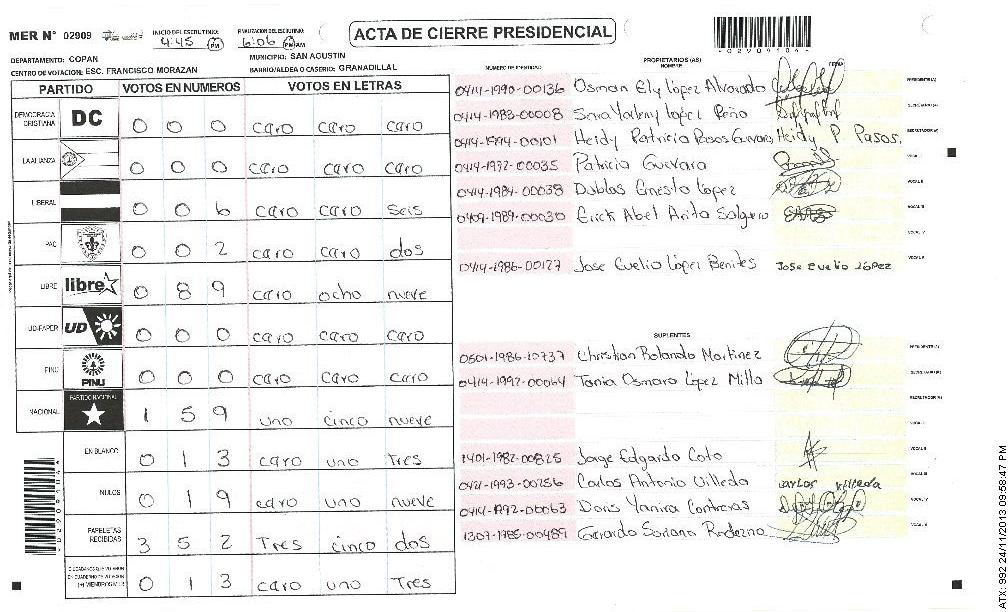 MER N° 02909
INICIO DEL ESCRUTINIO: 4:45 PM
FINALIZACION DEL ESCRUTINIO: 6:06 PM AM
ACTA DE CIERRE PRESIDENCIAL
02909104
DEPARTAMENTO: COPAN
MUNICIPIO: SAN AGUSTIN
CENTRO DE VOTACION: ESC. FRANCISCO MORAZAN
BARRIO/ALDEA O CASERIO: GRANADILLAL
PARTIDO VOTOS EN NUMEROS VOTOS EN LETRAS
DEMOCRACIA CRISTIANA DC 0 0 0 caro caro caro
LA ALIANZA 0 0 0 caro caro caro
LIBERAL 0 0 6 caro caro seis
PAC 0 0 2 caro caro dos
LIBRE libre 0 8 9 caro ocho nueve
UD-FAPER UD 0 0 0 caro caro caro
PINU PINU 0 0 0 caro caro caro
NACIONAL PARTIDO NACIONAL 1 5 9 uno cinco nueve
EN BLANCO 0 1 3 caro uno Tres
NULOS 0 1 9 caro uno nueve
PAPELETAS RECIBIDAS 3 5 2 Tres cinco dos
CIUDADANOS QUE VOTARON EN CUADERNO DE VOTACION (+) MIEMBROS MER 0 1 3 caro uno Tres
NUMERO DE IDENTIDAD
PROPIETARIOS (AS)
NOMBRE
FIRMA
0414-1990-00136 Osman Ely López Alvarado PRESIDENTE(A)
0414-1983-00008 Sara Yarleny López Peña SECRETARIO(A)
0414-1994-00101 Heidy Patricia Pasos Guevara Heidy P Pasos. ESCRUTADOR(A)
0414-1972-00035 Patricia Guevara VOCAL I
0414-1984-00038 Dublas Ernesto Lopez VOCAL II
0409-1989-00030 Erick Abel Arita Salguero VOCAL III
VOCAL IV
0414-1986-00127 Jose Evelio López Benites Jose Evelio López VOCAL V
SUPLENTES
0501-1986-10737 Christian Rolando Martinez PRESIDENTE(A)
0414-1992-00064 Tania Osmara López Milla SECRETARIO(A)
ESCRUTADOR(A)
VOCAL I
1401-1982-00825 Jorge Edgardo Coto VOCAL II
0421-1993-00256 Carlos Antonio Villeda Carlos Villeda VOCAL III
0414-1992-00063 Doris Yanira Contreras VOCAL IV
1307-1985-00489 Gerardo Soriano Rodezno VOCAL V
02909104
ATX: 992 24/11/2013 09:58:47 PM